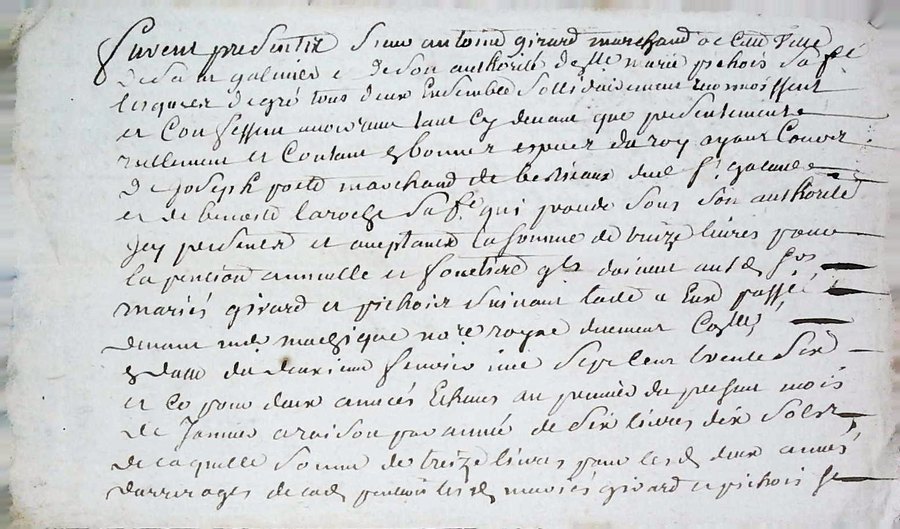 furent presents Sieur antoine girard marchand de cette ville
de saint galmier & de son authorité d.lle marie pichois sa fe
lesquels de gré tous deux Ensembles Sollidairement reconnoissent
et Confessent avoir tant cy devant que presentement
réellement et Contant en bonnes especes du roy ayant Cours
de joseph poete marchand de bestiaux dud. St galmier
et de benoite laroche sa fe qui procede sous son authorité
jcy presents et acceptants la somme de treize livres pour
la pention annuelle et fonciere qls doivent auxd.
mariés girard et pichois suivant lacte a Eux passé
devant me. nore royal duement
en datte du deuxieme fevrier mil Sept cent trente Six
et Ce pour deux années Echues au premier du present mois
de Janvier a raison par année de Six livres dix Solz
de laquelle somme de treize livres pour lesd. deux années
darrerages de lad. pention lesd. mariés girard et pichois Se